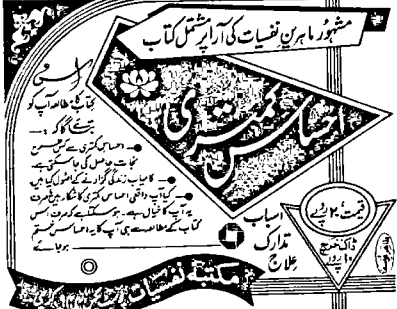 مشہور ماہرینِ نفسیات کی آرا پر مشتمل کتاب
احساسِ کمتری
اس
کتاب کا مطالعہ آپ کو
بتائے گا کہ :-
احساس کمتری سے کس طرح
نجات حاصل کی جاسکتی ہے
کامیاب زندگی گزارنے کے اصول کیا ہیں
کیا آپ واقعی احساس کمتری کا شکار ہیں صرف
یہ آپ کا خیال ہے۔ ہوسکتا ہے کہ صرف اس
کتاب کے مطالعہ سے ہی آپ کا یہ احساس ختم
ہوجائے
اسباب
تدارک
علاج
قیمت: ۲۰ روپے
ڈاک خرچ
۱۰ روپے
مکتبہ نفسیات